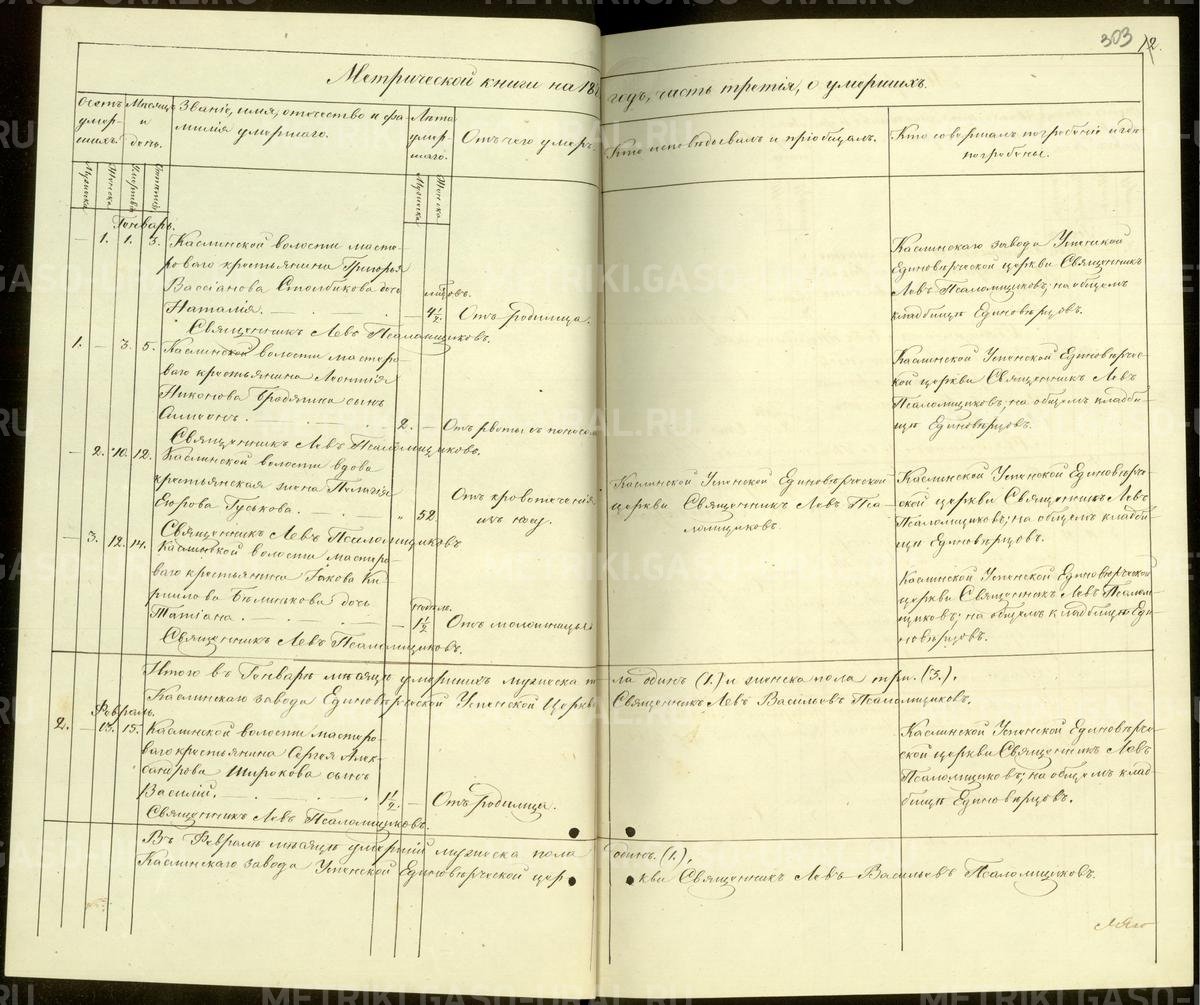 303
12.
Метрической книги на 18 годъ, часть третія, о умершихъ.
Счетъ умер- шихъ.
Мѣсяцъ и день.
Званіе, имя, отчество и фа-
милія умершаго.
Лѣта умер- шаго.
Отъ чего умеръ.
Кто исповѣдывалъ и пріобщалъ.
Кто совершалъ погребеніе и гдѣ
погребены.
Мужеска
Женска
Смерти
Мужеска
Женска
Генварь.
— 1. 1. 3. Каслинской волости масте-
роваго крестьянина Григорья
Вассіанова Столбикова дочь
Наталія. — 4½. Отъ родимца.
Священникъ Левъ Псаломщиковъ.
Каслинскаго завода Успенской
Единовѣрческой церкви Священникъ
Левъ Псаломщиковъ; на общемъ
кладбищѣ Единовѣрцовъ.
1. — 3. 5. Каслинской волости мастеро-
ваго крестьянина Леонтія
Никонова сынъ
Симеонъ. 2. — Отъ рвоты съ поносомъ
Священникъ Левъ Псаломщиковъ.
Каслинской Успенской Единовѣрчес-
кой церкви Священникъ Левъ
Псаломщиковъ; на общемъ кладби-
щѣ Единовѣрцовъ.
— 2. 10. 12. Каслинской волости вдова
крестьянская жена Пелагія
Егорова Гуськова. 52 Отъ кровотеченія
изъ носу.
Священникъ Левъ Псаломщиковъ
Каслинской Успенской Единовѣрческой
церкви Священникъ Левъ Пса-
ломщиковъ.
Каслинской Успенской Единовѣрче-
ской церкви Священникъ Левъ
Псаломщиковъ; на общемъ кладби-
щѣ Единовѣрцовъ.
3. 12. 14. Каслинской волости мастеро-
ваго крестьянина Іакова Ки-
рилова дочь
Татіана. — недѣль. 1½ Отъ молошницы
Священникъ Левъ Псаломщиковъ.
Каслинской Успенской Единовѣрческой
церкви Священникъ Левъ Псалом-
щиковъ; на общемъ кладбищѣ Еди-
новѣрцовъ.
Итого въ Генварѣ мѣсяцѣ умершихъ мужеска по-
ла одинъ (1.) и женска пола три. (3.).
Каслинскаго завода Единовѣрческой Успенской Церкви
Священникъ Левъ Васильевъ Псаломщиковъ.
Февраль.
2. — 13. 15. Каслинской волости мастеро-
ваго крестьянина Сергѣя Алек-
сандрова Широкова сынъ
Василій. 1½. — Отъ родимца.
Священникъ Левъ Псаломщиковъ.
Каслинской Успенской Единовѣрче-
ской церкви Священникъ Левъ
Псаломщиковъ; на общемъ клад-
бищѣ Единовѣрцовъ.
Въ Февралѣ мѣсяцѣ умершій мужеска пола
одинъ. (1.).
Каслинскаго завода Успенской Единовѣрческой цер-
кви Священникъ Левъ Васильевъ Псаломщиковъ.
METRIKI.GASO-URAL.RU